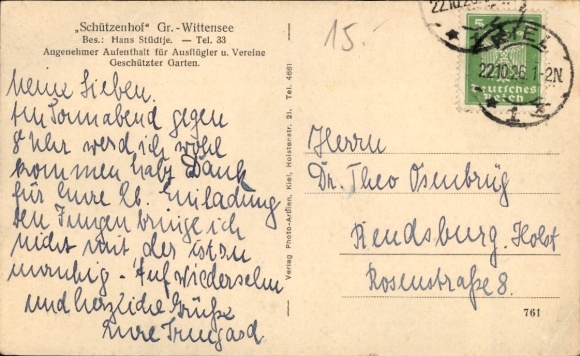 „Schützenhof" Gr.-Wittensee
Bes.: Hans Städtje. — Tel. 33
Angenehmer Aufenthalt für Ausflügler u. Vereine
Geschützter Garten.
15.-
22.10.26
KIEL
22.10.26.1-2N
* 1 *
5
Deutsches
Reich
Meine Lieben.
Am Sonnabend gegen
8 Uhr werd ich wohl
kommen habt Dank
für Eure lb. Einladung
Den Jungen bringe ich
nicht mit der ist zu
unruhig. Auf Wiedersehn
und herzliche Grüße
Eure Irmgard.
Verlag Photo-Arnien, Kiel, Holstenstr. 21. Tel. 4661
Herrn
Dr. Theo Osenbrüg
Rendsburg. Holst
Rosenstraße 8.
761